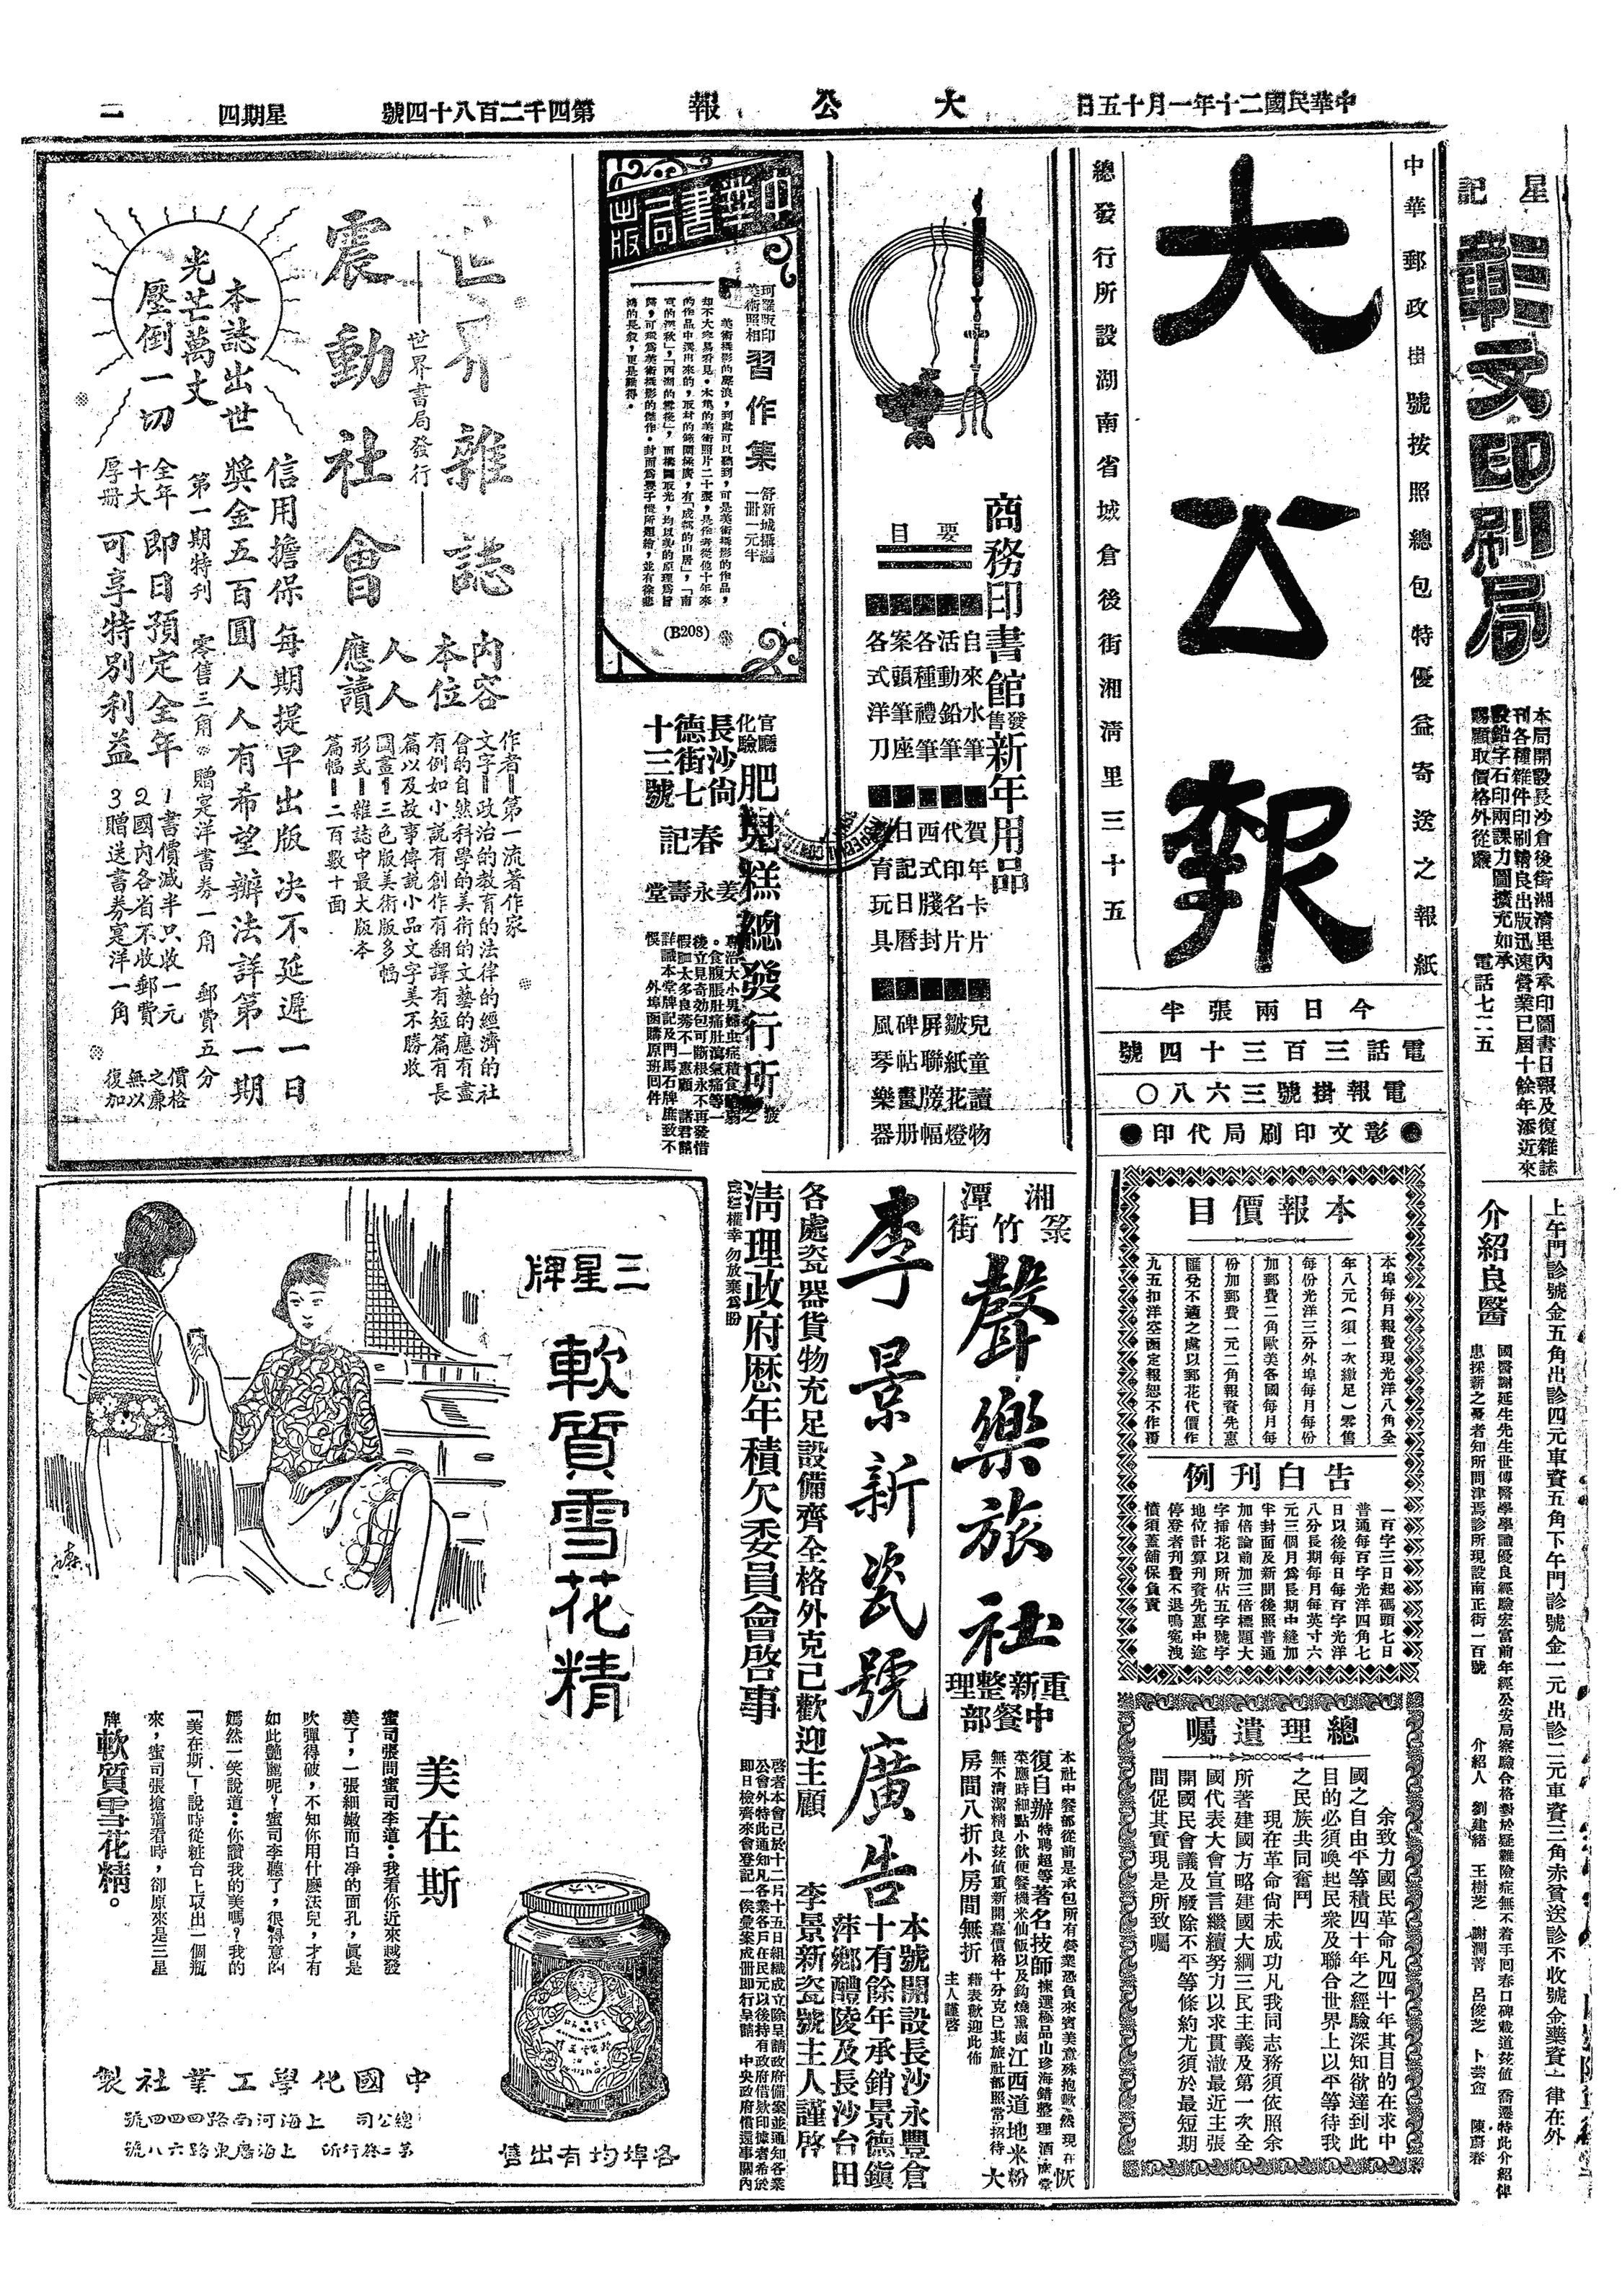 中華民國二十年一月十五日
大公報
第四千二百八十四號
星期四
二
星記
彰文印刷局
本局開設長沙倉後街湘清里內承印圖書日報及復雜誌
刊各種雜件印刷精良出版迅速營業已屆十餘年添近來
設鉛字石印兩課力圖擴充如承
賜顧取價格外從廉
電話七二五
上午門診號金五角出診四元車資五角下午門診號金一元出診二元車資三角赤貧送診不收號金藥資一律在外
介紹良醫
國醫謝延生先生世傳醫學學識優良經驗宏富前年經公安局察驗合格對於疑難險症無不着手回春口碑載道茲值 喬遷特此介紹俾
患採薪之憂者知所問津焉診所現設南正街一百號
介紹人 劉建緒 王樹芝 謝潤善 呂俊芝 卜雲愈 陳蔚春
中華郵政掛號按照總包特優益寄送之報紙
大公報
總發行所設湖南省城倉後街湘清里三十五
今日兩張半
電話三百三十四號
電報掛號三六八〇
●彰文印刷局代印●
本報價目
本埠每月報費現光洋八角全
年八元(須一次繳足)零售
每份光洋三分外埠每月每份
加郵費二角歐美各國每月每
份加郵費一元二角報資先惠
匯兌不通之處以郵花代價作
九五扣洋空函定報恕不作覆
告白刊例
一百字三日起碼頭七日
普通每百字光洋四角七
日以後每日每百字光洋
八分長期每月每英寸六
元三個月爲長期中縫加
半封面及新聞後照普通
加倍論前加三倍標題大
字插花以所佔五號字
地位計算刊資先惠中途
停登者刊費不退鳴寃洩
憤須蓋舖保負責
總理遺囑
余致力國民革命凡四十年其目的在求中
國之自由平等積四十年之經驗深知欲達到此
目的必須喚起民衆及聯合世界上以平等待我
之民族共同奮鬥
現在革命尙未成功凡我同志務須依照余
所著建國方略建國大綱三民主義及第一次全
國代表大會宣言繼續努力以求貫澈最近主張
開國民會議及廢除不平等條約尤須於最短期
間促其實現是所致囑
商務印書館發售新年用品
要目
自來水筆
活動鉛筆
各種禮筆
案頭筆座
各式洋刀
賀年卡片
代印名片
西式牋封
日記日曆
教育玩具
兒童讀物
皺紙花燈
屏聯牓幅
碑帖畫册
風琴樂器
中華書局出版
珂羅版印
美術照相
習作集
舒新城攝編
一册一元半
美術攝影的聲浪,到處可以聽到,可是美術攝影的作品,
却不大容易看見。本集的美術照片二十張,是作者從他十年來
的作品中選出來的,取材的範圍極廣,有「成都的山居」,「南
京的深秋」,「西湖的雪花」,而構圖取光,均以美的原理爲旨
歸,可稱爲美術攝影的傑作。封面爲豐子愷所題繪,並有徐悲
鴻的長叙,更是難得。
(B208)
官廳化驗
肥兒糕總發行所
長沙尙
德街七
十三號
春記
姜永壽堂
專治大小男婦虫症積食疲弱之
。食腹脹肚痛肚瀉氣痛等一
後立見奇効包可斷根永不再發惜
假冒太多良莠不一惠顧 諸君請
詳認本堂牌記及門馬石牌庶致不
悞 外埠函購原班回件
世界雜誌
世界書局發行
震動社會
本誌出世
光芒萬丈
壓倒一切
內容
本位
人人
應讀
作者—第一流著作家
文字—政治的教育的法律的經濟的社
會的自然科學的美術的文藝的應有盡
有例如小說有創作有翻譯有短篇有長
篇以及故事傳說小品文字美不勝收
圖畫—三色版美術版多幅
形式—雜誌中最大版本
篇幅—二百數十面
信用擔保 每期提早出版決不延遲一日
獎金五百圓 人人有希望 辦法詳第一期
第一期特刊 零售三角 贈寔洋書券一角 郵費五分
全年
十大
厚册
即日預定全年
可享特別利益
1書價減半只收一元
2國內各省不收郵費
3贈送書券寔洋一角
價格
之廉
無以
復加
湘潭
篆竹街
聲樂旅社
重新整理
中餐部
本社中餐部從前是承包所有營業恐負來賓美意殊抱歉然現在恢
復自辦特聘超等著名技師揀選極品山珍海錯整理酒席堂
菜應時細點小飲便餐機米仙飯以及鈎燒熏鹵江西道地米粉
無不清潔精良茲值重新開幕價格十分克已其旅社部照常招待大
房間八折小房間無折
藉表歡迎此佈
主人謹啓
李景新瓷號廣告
本號開設長沙永豐倉
十有餘年承銷景德鎭
萍鄉醴陵及長沙台田
各處瓷器貨物充足設備齊全格外克己歡迎主顧
李景新瓷號主人謹啓
清理政府歷年積欠委員會啓事
啓者本會已於十二月十五日組織成立除呈請政府備案並通知各業
公會外特此通知凡各業各戶在民元以後持有政府借欵印據者希於
即日檢齊來會登記一俟彙案成册即行呈請 中央政府償還事關內
勿放棄爲盼
三星牌
軟質雪花精
美在斯
蜜司張問蜜司李道:我看你近來越發
美了,一張細嫩而白净的面孔,眞是
吹彈得破,不知你用什麽法兒,才有
如此艷麗呢?蜜司李聽了,很得意的
嫣然一笑說道:你讚我的美嗎?我的
「美在斯」!說時從粧台上取出一個瓶
來,蜜司張搶着看時,卻原來是三星
牌軟質雪花精。
中國化學工業社製
總公司 上海河南路四四四號
第二發行所 上海廣東路六八號
各埠均有出售